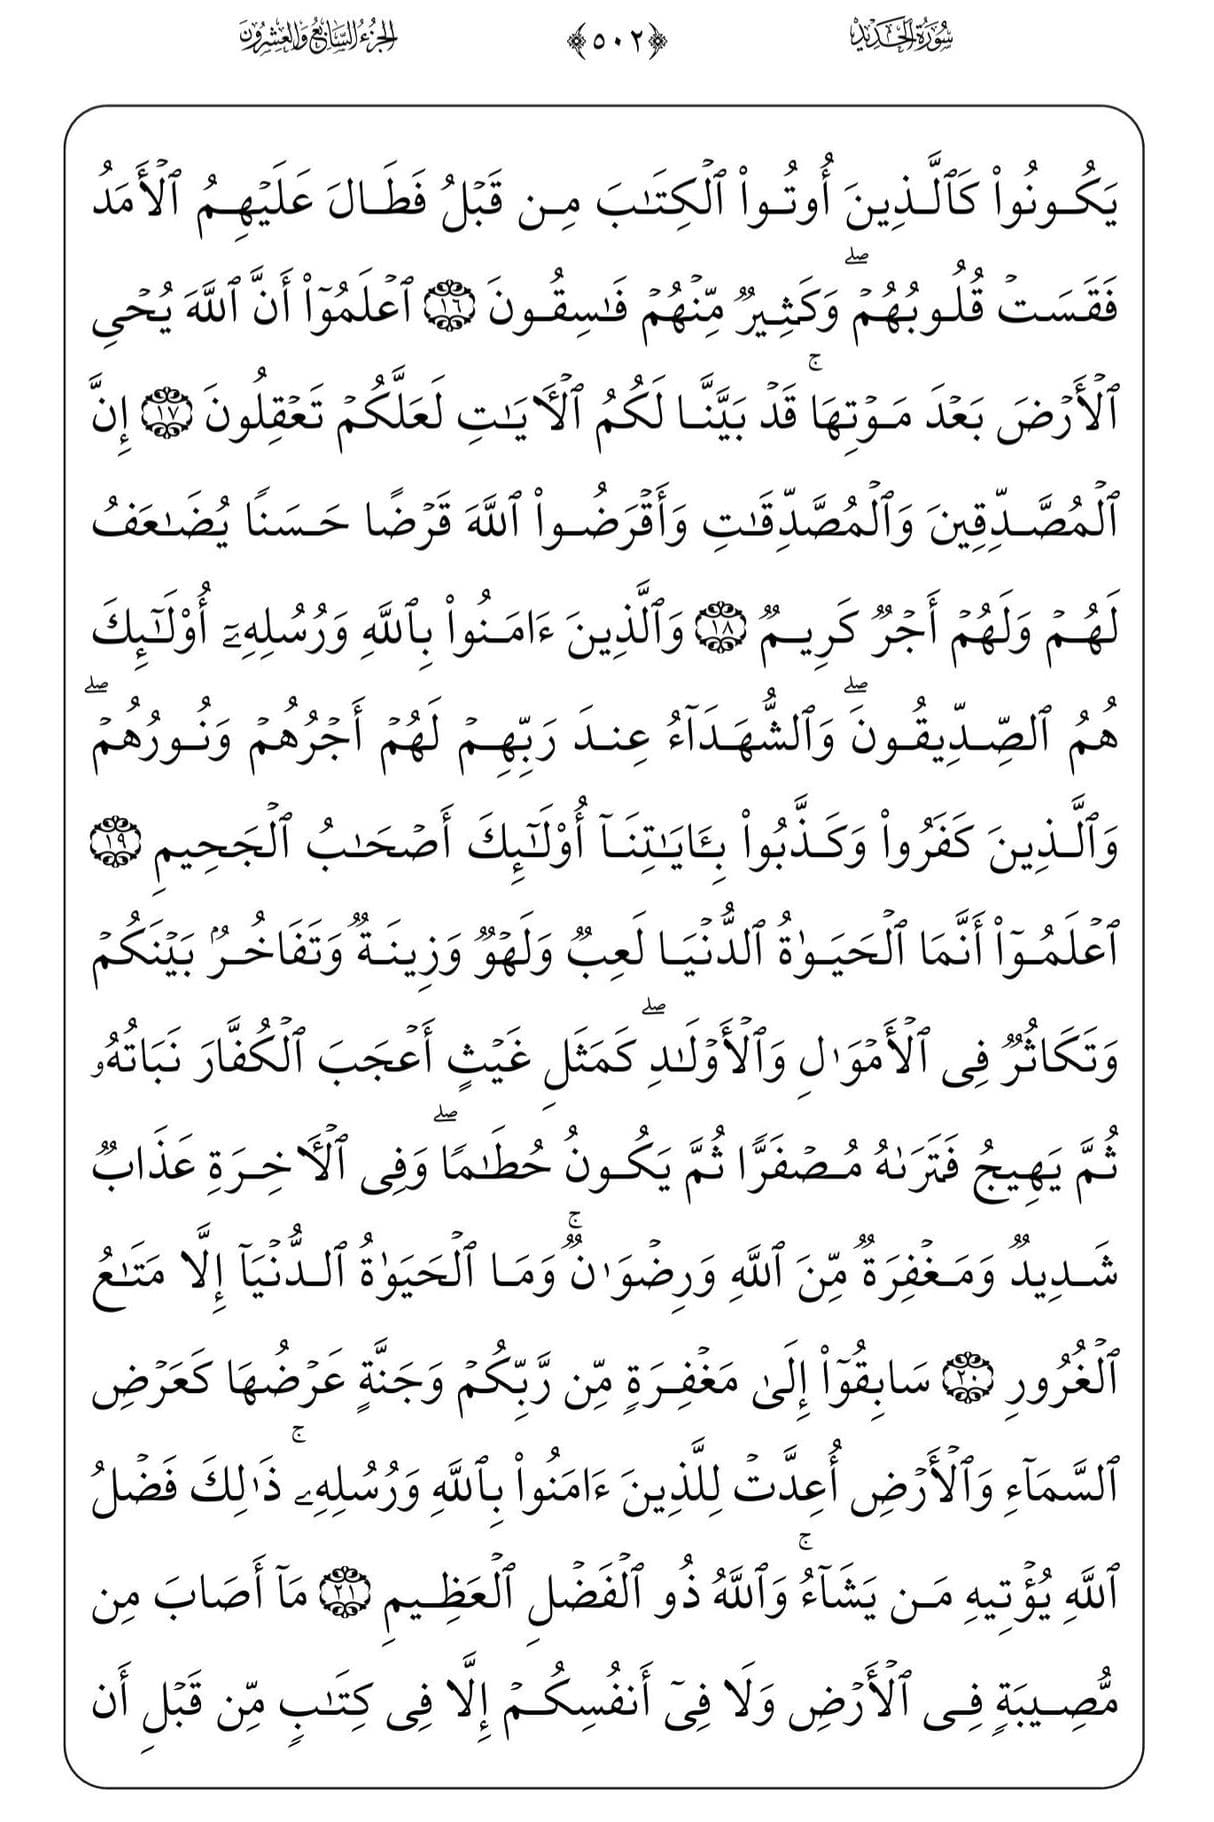 سُورَةُ الحَدِيدِ ﴿٥٠٢﴾ الجُزْءُ السَّابِعُ وَالعِشْرُونَ
يَكُونُوا۟ كَٱلَّذِينَ أُوتُوا۟ ٱلْكِتَـٰبَ مِن قَبْلُ فَطَالَ عَلَيْهِمُ ٱلْأَمَدُ
فَقَسَتْ قُلُوبُهُمْ ۖ وَكَثِيرٌ مِّنْهُمْ فَـٰسِقُونَ ١٦ ٱعْلَمُوٓا۟ أَنَّ ٱللَّهَ يُحْىِ
ٱلْأَرْضَ بَعْدَ مَوْتِهَا ۚ قَدْ بَيَّنَّا لَكُمُ ٱلْـَٔايَـٰتِ لَعَلَّكُمْ تَعْقِلُونَ ١٧ إِنَّ
ٱلْمُصَّدِّقِينَ وَٱلْمُصَّدِّقَـٰتِ وَأَقْرَضُوا۟ ٱللَّهَ قَرْضًا حَسَنًا يُضَـٰعَفُ
لَهُمْ وَلَهُمْ أَجْرٌ كَرِيمٌ ١٨ وَٱلَّذِينَ ءَامَنُوا۟ بِٱللَّهِ وَرُسُلِهِۦٓ أُو۟لَـٰٓئِكَ
هُمُ ٱلصِّدِّيقُونَ ۖ وَٱلشُّهَدَآءُ عِندَ رَبِّهِمْ لَهُمْ أَجْرُهُمْ وَنُورُهُمْ ۖ
وَٱلَّذِينَ كَفَرُوا۟ وَكَذَّبُوا۟ بِـَٔايَـٰتِنَآ أُو۟لَـٰٓئِكَ أَصْحَـٰبُ ٱلْجَحِيمِ ١٩
ٱعْلَمُوٓا۟ أَنَّمَا ٱلْحَيَوٰةُ ٱلدُّنْيَا لَعِبٌ وَلَهْوٌ وَزِينَةٌ وَتَفَاخُرٌۢ بَيْنَكُمْ
وَتَكَاثُرٌ فِى ٱلْأَمْوَٰلِ وَٱلْأَوْلَـٰدِ ۖ كَمَثَلِ غَيْثٍ أَعْجَبَ ٱلْكُفَّارَ نَبَاتُهُۥ
ثُمَّ يَهِيجُ فَتَرَىٰهُ مُصْفَرًّا ثُمَّ يَكُونُ حُطَـٰمًا ۖ وَفِى ٱلْـَٔاخِرَةِ عَذَابٌ
شَدِيدٌ وَمَغْفِرَةٌ مِّنَ ٱللَّهِ وَرِضْوَٰنٌ ۚ وَمَا ٱلْحَيَوٰةُ ٱلدُّنْيَآ إِلَّا مَتَـٰعُ
ٱلْغُرُورِ ٢٠ سَابِقُوٓا۟ إِلَىٰ مَغْفِرَةٍ مِّن رَّبِّكُمْ وَجَنَّةٍ عَرْضُهَا كَعَرْضِ
ٱلسَّمَآءِ وَٱلْأَرْضِ أُعِدَّتْ لِلَّذِينَ ءَامَنُوا۟ بِٱللَّهِ وَرُسُلِهِۦ ۚ ذَٰلِكَ فَضْلُ
ٱللَّهِ يُؤْتِيهِ مَن يَشَآءُ ۚ وَٱللَّهُ ذُو ٱلْفَضْلِ ٱلْعَظِيمِ ٢١ مَآ أَصَابَ مِن
مُّصِيبَةٍ فِى ٱلْأَرْضِ وَلَا فِىٓ أَنفُسِكُمْ إِلَّا فِى كِتَـٰبٍ مِّن قَبْلِ أَن